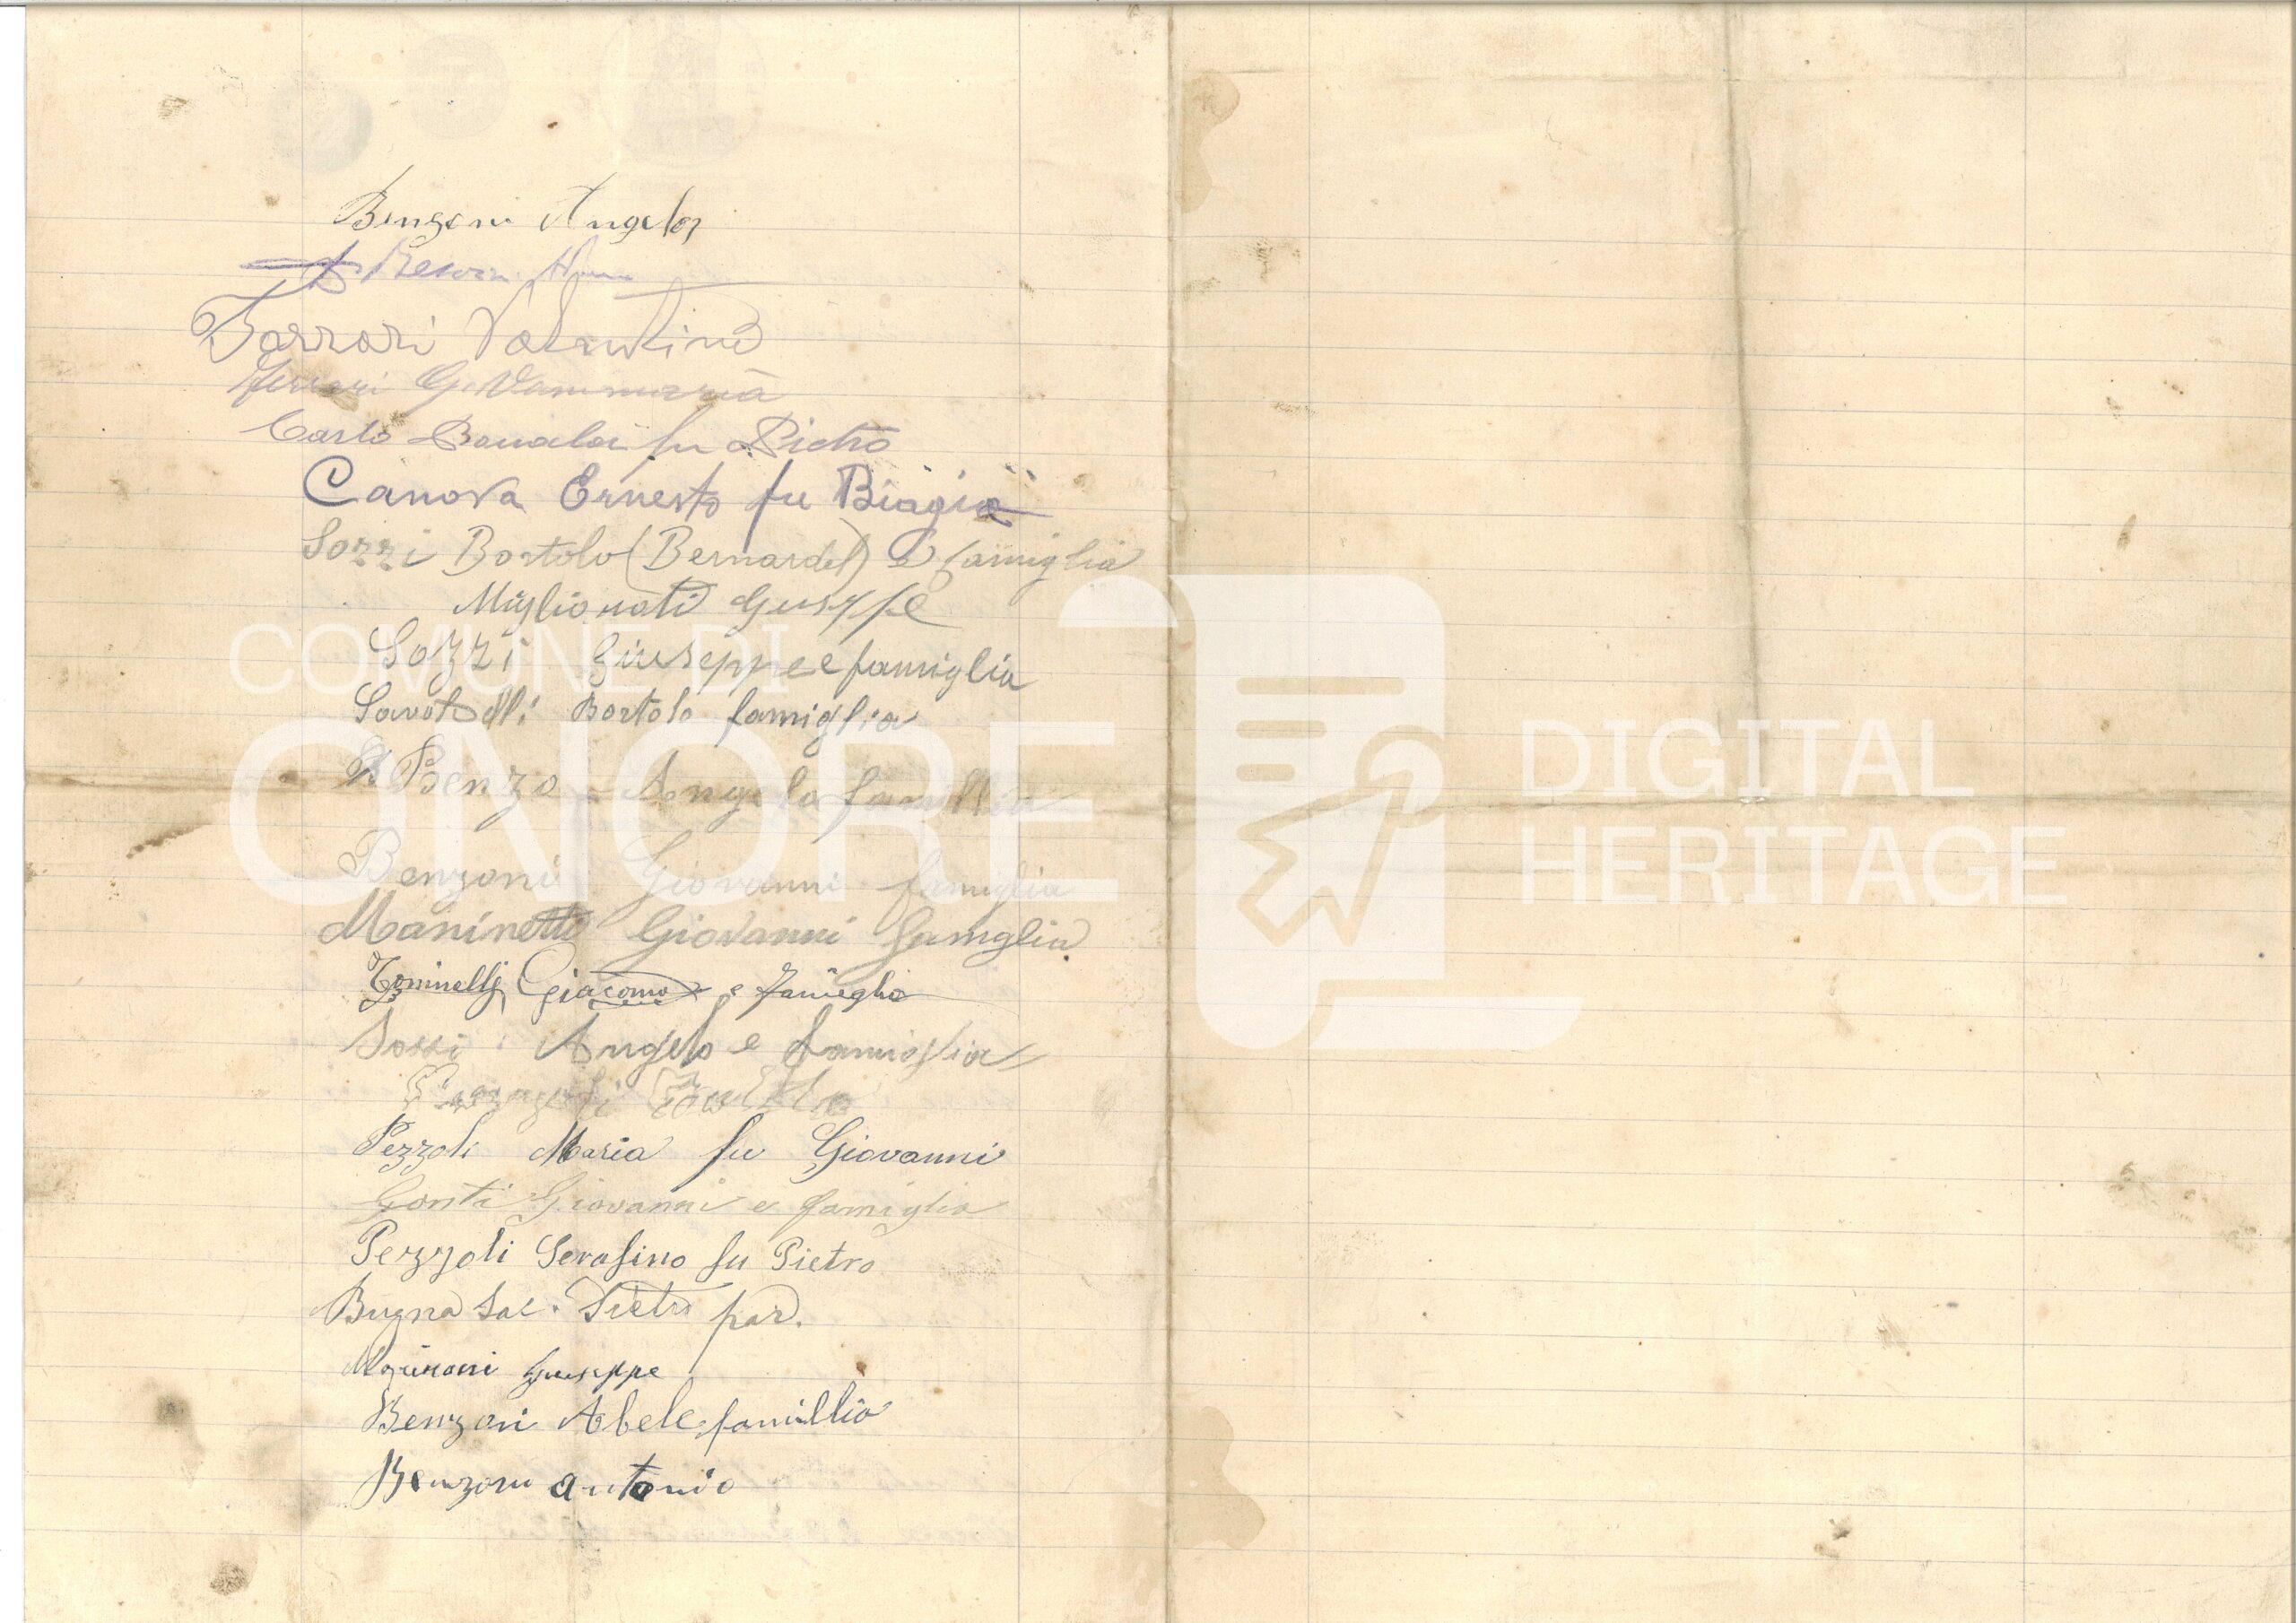 Benzoni Angelo
Ferrari Valentino
Ferrari G. Vammaria
Carlo fu Pietro
Canova Ernesto fu Biagio
Sozzi Bortolo (Bernardel) e famiglia
Miglionati Gusppe
Sozzi Giuseppe e famiglia
Savoldelli Bortolo famiglia
Benzo Angelo famillia
Benzoni Giovanni famiglia
Maninetti Giovanni famiglia
Toninelli Giacomo e famiglia
Sozzi Angelo e famiglia
Pezzoli Maria fu Giovanni
Conti Giovanni e famiglia
Pezzoli Serafino fu Pietro
Bugna Sac. Pietro par.
Giuseppe
Benzoni Abele famillia
Benzoni antonio
COMUNE DI
ONORE
DIGITAL
HERITAGE